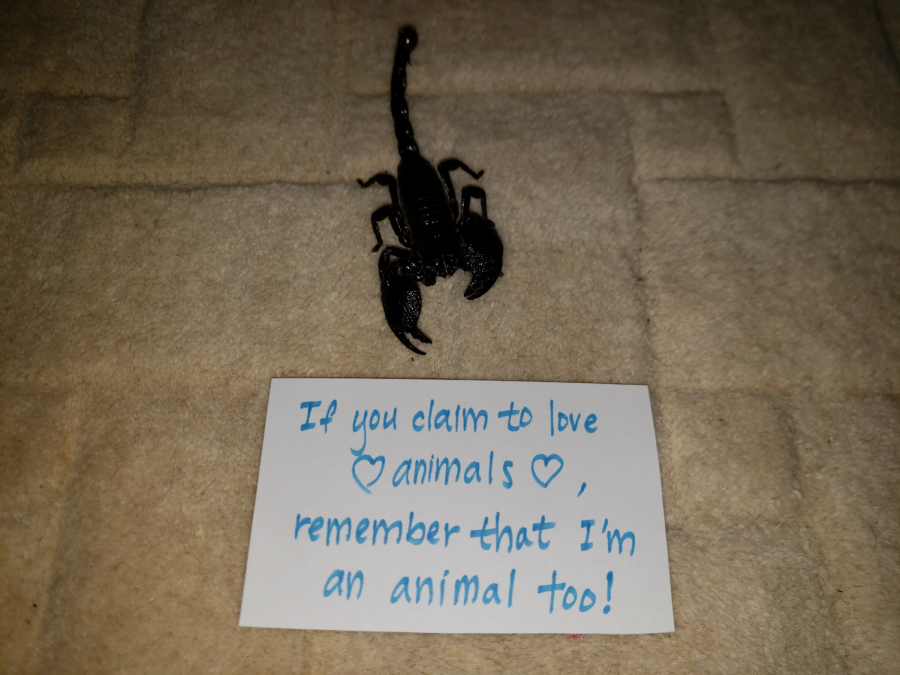 If you claim to love
♡ animals ♡ ,
remember that I'm
an animal too!